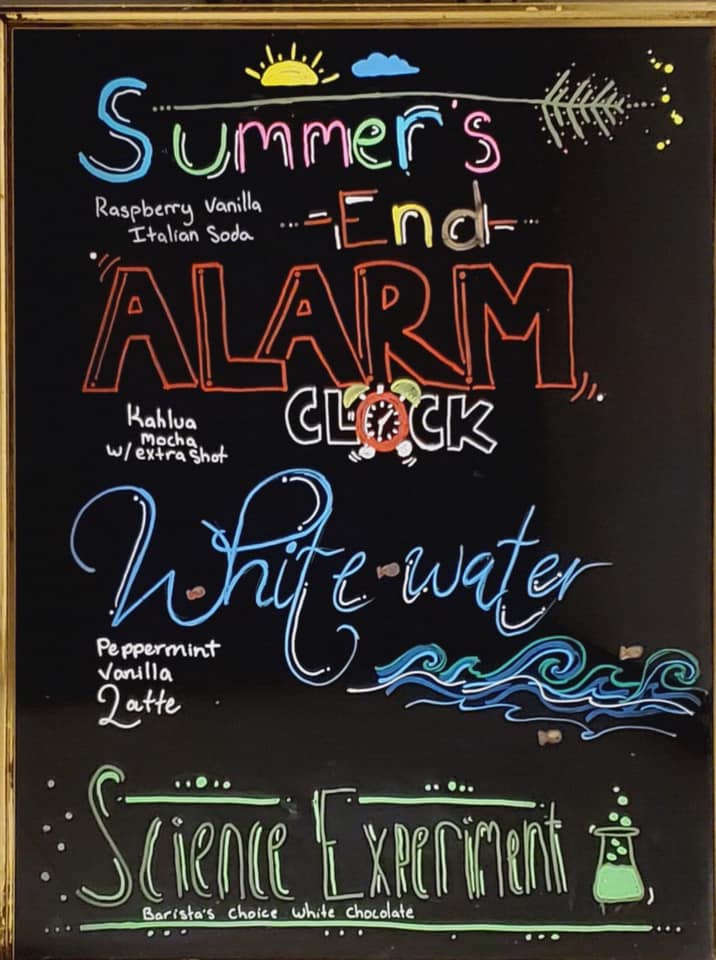 Summer's
Raspberry Vanilla
Italian Soda
End
ALARM
CLOCK
Kahlua
mocha
w/ extra shot
White-water
Peppermint
Vanilla
Latte
Science Experiment
Barista's Choice White Chocolate